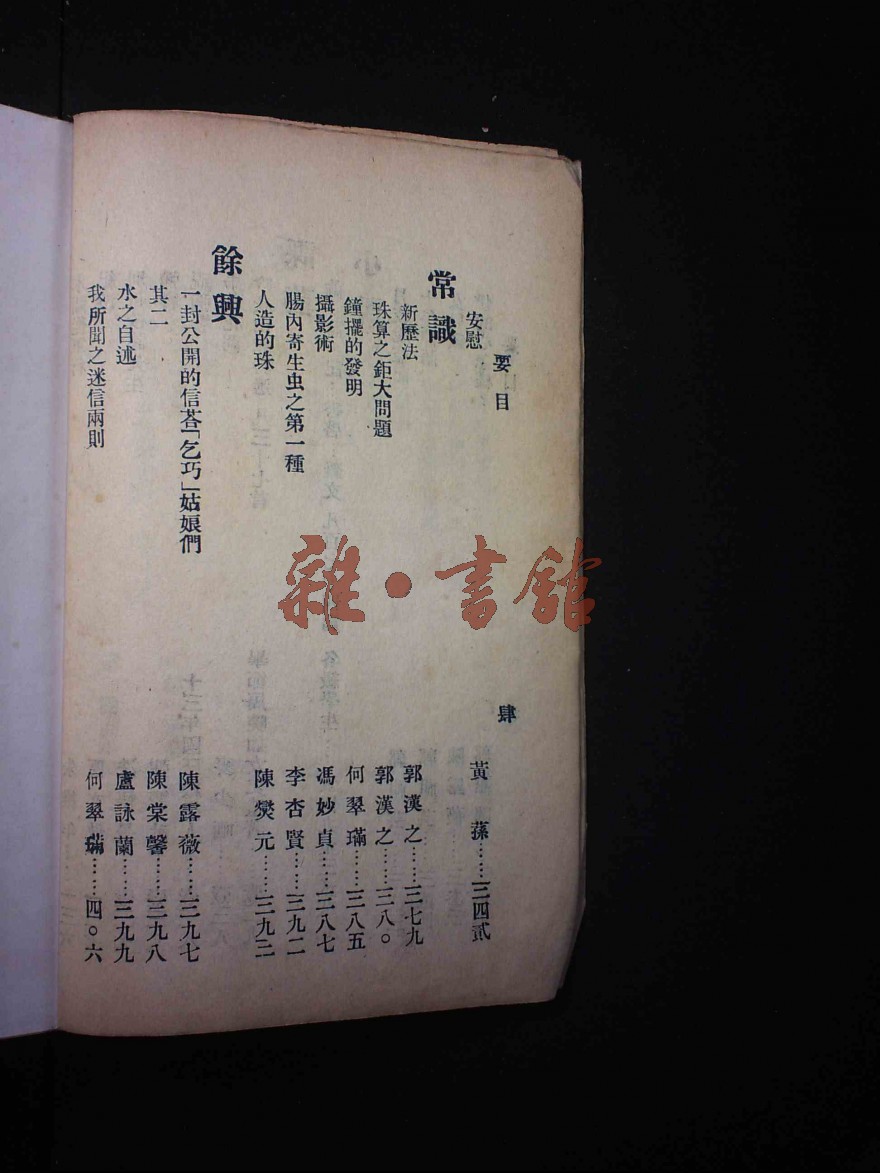 要目 肆
安慰 黃蓀……三四貳
常識
新歷法 郭漢之……三七九
珠算之鉅大問題 郭漢之……三八〇
鐘擺的發明 何翠㻞……三八五
攝影術 馮妙貞……三八七
腸內寄生虫之第一種 李杏賢……三九二
人造的珠 陳爕元……三九三
餘興
一封公開的信荅「乞巧」姑娘們 陳露薇……三九七
其二 陳棠馨……三九八
水之自述 盧詠蘭……三九九
我所聞之迷信兩則 何翠㻞……四〇六
雜·書館